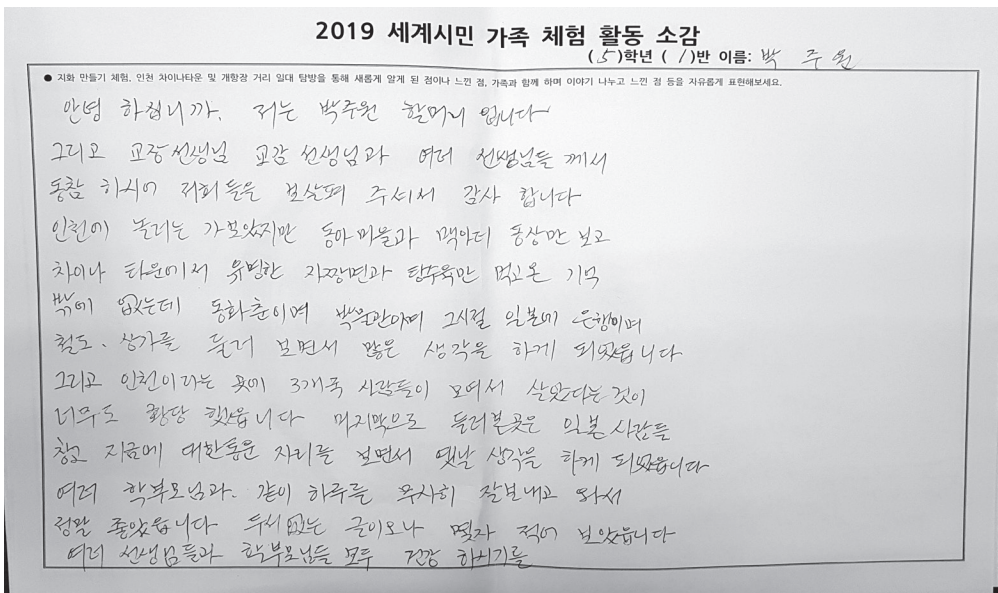 2019 세계시민 가족 체험 활동 소감
(5)학년 (1)반 이름: 박 주 원
● 지화 만들기 체험, 인천 차이나타운 및 개항장 거리 일대 탐방을 통해 새롭게 알게 된 점이나 느낀 점, 가족과 함께 하며 이야기 나누고 느낀 점 등을 자유롭게 표현해보세요.
안녕 하십니까. 저는 박주원 할머니 입니다
그리고 교장선생님 교감 선생님과 여러 선생님들 께서
동참 하시어 저희들을 보살펴 주셔서 감사 합니다
인천에 놀러는 가보았지만 동아마을과 맥아더 동상만 보고
차이나 타운에서 유명한 자장면과 탕수육만 먹고온 기억
밖에 없는데 동화춘이며 박물관이며 그시절 일본에 은행이며
철도. 상가를 들러 보면서 많은 생각을 하게 되었읍니다
그리고 인천이라는 곳에 3개국 사람들이 모여서 살았다는 것이
너무도 황당 했읍니다 마지막으로 들러본곳은 일본사람들
창고 지금에 대한통운 자리를 보면서 옛날 생각을 하게 되었읍니다
여러 학부모님과. 같이 하루를 무사히 잘보내고 와서
정말 좋았읍니다 두서없는 글이오나 몇자 적어 보았읍니다
여러 선생님들과 학부모님들 모두 건강 하시기를